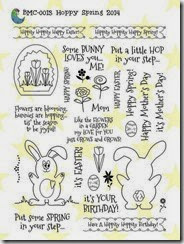 RMC-001S Hoppy Spring 2014
Hoppity Hoppity Hoppy Easter!
Hoppity Hoppity Hoppy Spring!
Some BUNNY
LOVES you...
ME!
Put a little HOP
in your step...
HAPPY EASTER
Happy Spring!
It's Mother's Day!
Happy Mother's Day!
Mom
Flowers are blooming,
bunnies are hopping...
'tis the season
to be joyful!
Like the FLOWERS
in a GARDEN
my LOVE for YOU
just GROWS and GROWS!
it's EASTER!
it's SPRING!
it's YOUR
BIRTHDAY!
Put some SPRING
in your step...
Have A Hoppity Hoppity Birthday!